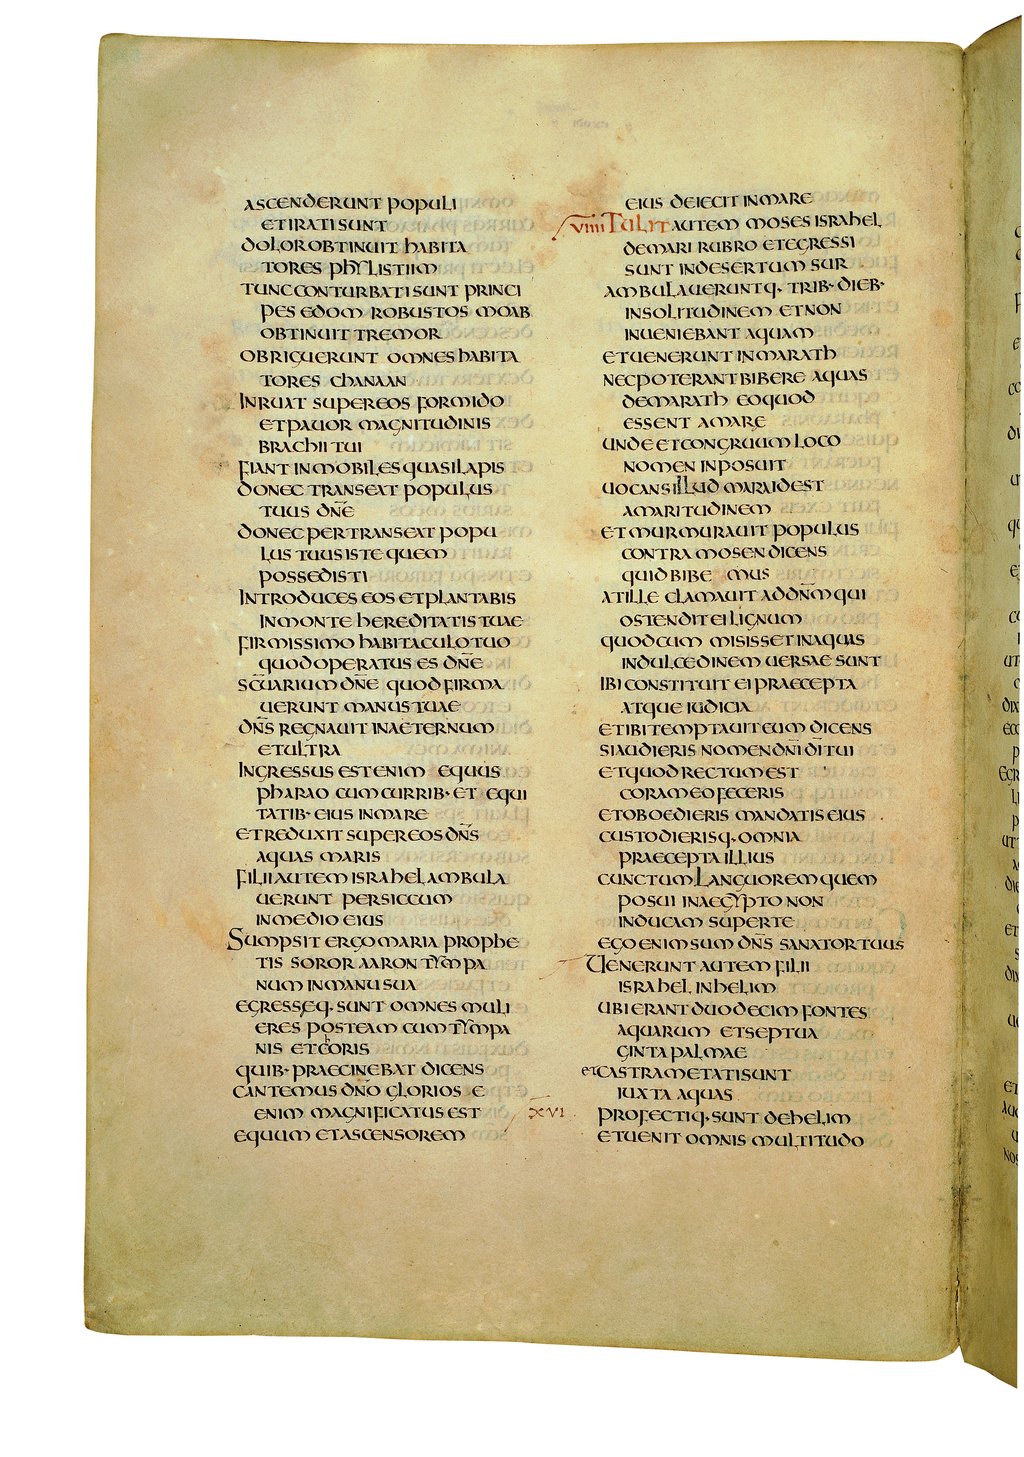 ascenderunt populi
et irati sunt
dolor obtinuit habita
tores phylistiim
tunc conturbati sunt princi
pes edom robustos moab
obtinuit tremor
obriguerunt omnes habita
tores chanaan
Inruat super eos formido
et pauor magnitudinis
brachii tui
fiant inmobiles quasi lapis
donec transeat populus
tuus dn̄e
donec pertranseat popu
lus tuus iste quem
possedisti
Introduces eos et plantabis
in monte hereditatis tuae
firmissimo habitaculo tuo
quod operatus es dn̄e
sc̄uarium dn̄e quod firma
uerunt manus tuae
dn̄s regnauit in aeternum
et ultra
Ingressus est enim equus
pharao cum currib· et equi
tatib· eius in mare
et reduxit super eos dn̄s
aquas maris
filii autem israhel ambula
uerunt per siccum
in medio eius
Sumpsit ergo maria prophe
tis soror aaron tympa
num in manu sua
egressęq· sunt omnes muli
eres post eam cum tympa
nis et choris
quib· praecinebat dicens
cantemus dn̄o glorios e
enim magnificatus est
equum et ascensorem
eius deiecit in mare
uiiii Tulit autem moses israhel
de mari rubro et egressi
sunt in desertum sur
ambulaueruntq· trib· dieb·
in solitudinem et non
inueniebant aquam
et uenerunt in marath
nec poterant bibere aquas
de marath eo quod
essent amare
unde et congruum loco
nomen inposuit
uocans illud mara id est
amaritudinem
et murmurauit populus
contra mosen dicens
quid bibe mus
at ille clamauit ad dn̄m qui
ostendit ei lignum
quod cum misisset in aquas
in dulcedinem uersae sunt
ibi constituit ei praecepta
atque iudicia
et ibi temptauit eum dicens
si audieris nomen dn̄i dī tui
et quod rectum est
coram eo feceris
et oboedieris mandatis eius
custodierisq· omnia
praecepta illius
cunctum languorem quem
posui in aegypto non
inducam super te
ego enim sum dn̄s sanator tuus
Uenerunt autem filii
israhel in helim
ubi erant duodecim fontes
aquarum et septua
ginta palmae
et castrametati sunt
iuxta aquas
XVI profectiq· sunt de helim
et uenit omnis multitudo